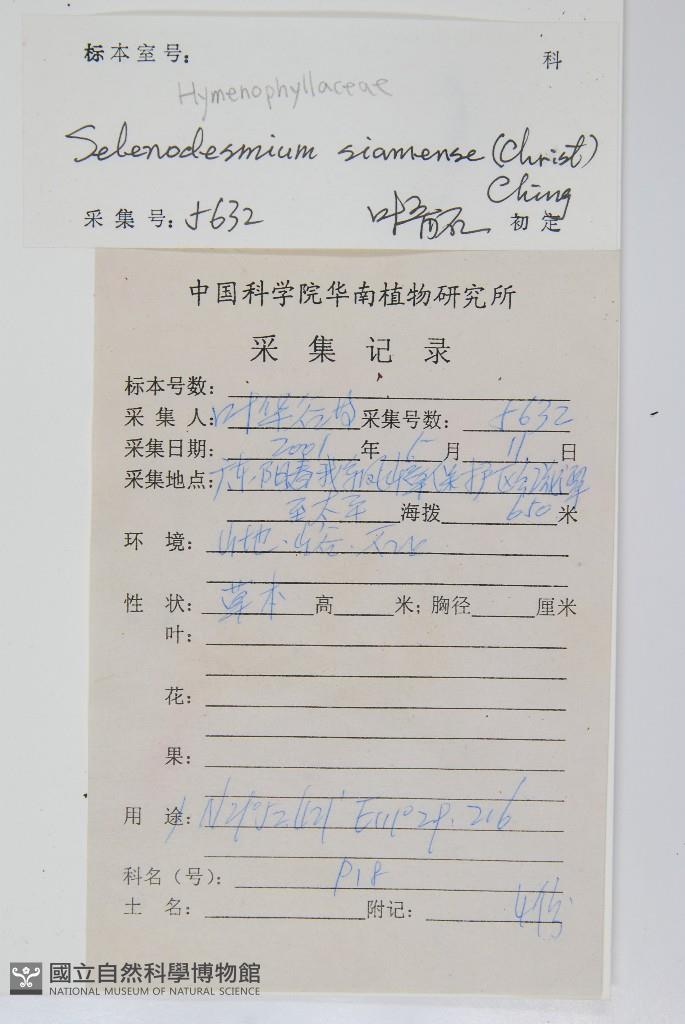 标本室号: 科
Hymenophyllaceae
Selenodesmium siamense (Christ)
Ching
采集号: 5632 叶育石 初定
中国科学院华南植物研究所
采集记录
标本号数:
采集人: 叶华谷 采集号数: 5632
采集日期: 2001年5月11日
采集地点: 广东.阳春
海拨 650米
环境: 山地.山谷
性状: 草本 高 米; 胸径 厘米
叶:
花:
果:
用途: N21°52.121' E111°29.216
科名(号): P18
土名: 附记: 4份
國立自然科學博物館
NATIONAL MUSEUM OF NATURAL SCIENCE